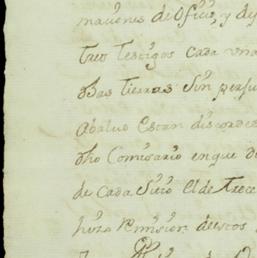 maciones de Oficio, y de
tres testigos cada una
dhas tierras sin perju
Abaluo estan discordes
dho Comisario en que de
de Cada Sitio el de trece
hizo Remision de estos